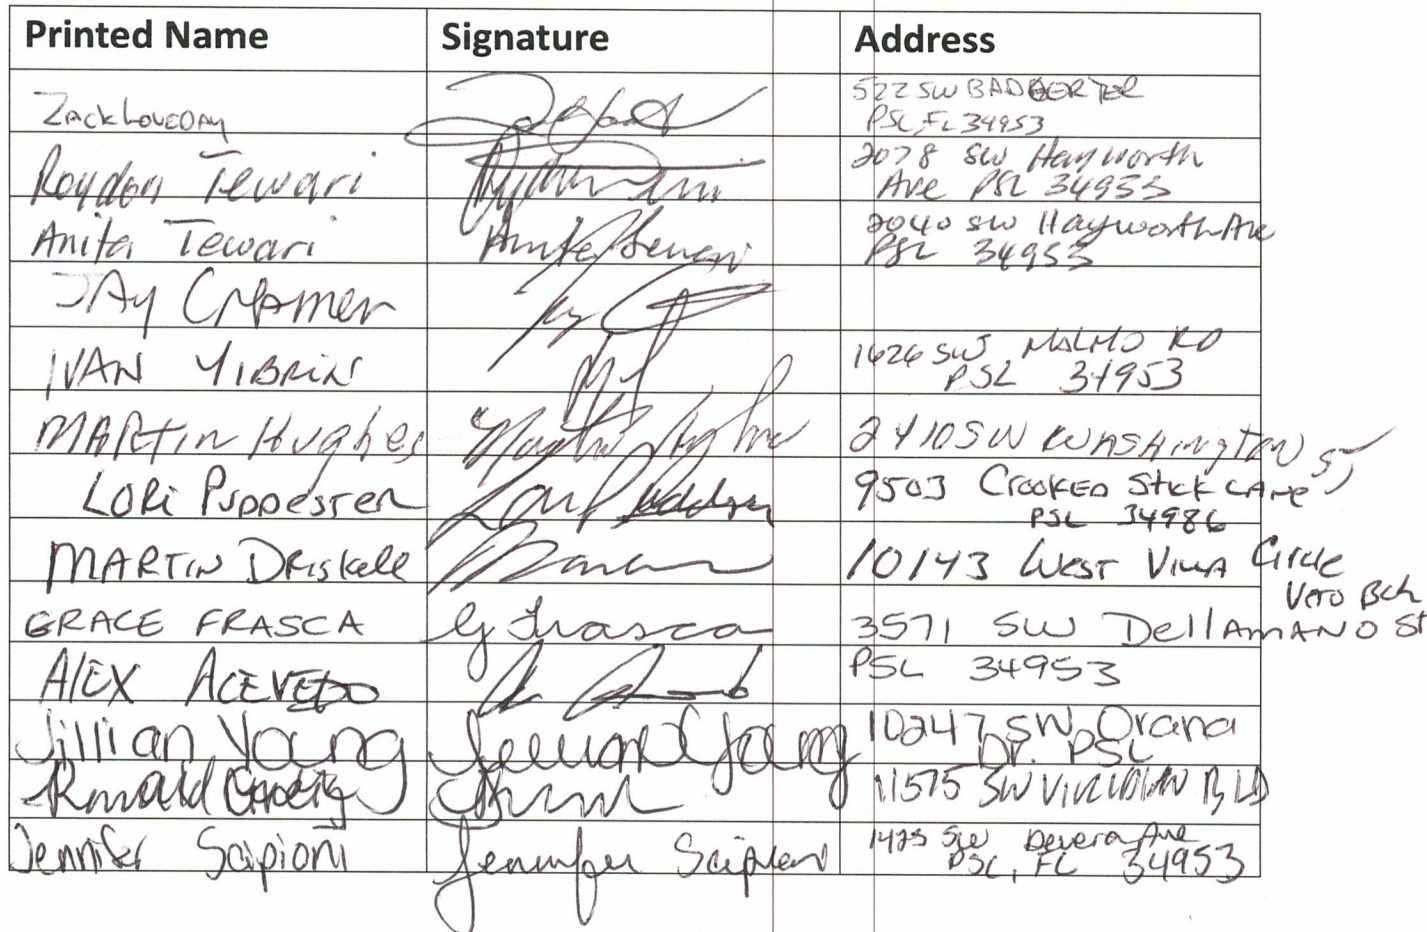 Printed Name Signature Address
Zack Loveday 522 SW BADGER TER
PSL, FL 34953
Roydon Tewari 2078 SW Hayworth
Ave PSL 34953
Anita Tewari Anita Tewari 2040 SW Hayworth Ave
PSL 34953
JAY CRAMER Jay
IVAN YIBRIN 1626 SW MALMO RD
PSL 34953
MARTIN Hughes Martin Hughes 2410 SW WASHINGTON ST
LORI PUDDESTER Lori 9503 CROOKED STICK LANE
PSL 34986
MARTIN DRISKELL 10143 WEST VILLA Circle
Vero Bch
GRACE FRASCA G Frasca 3571 SW DellAMANO St
ALEX ACEVEDO PSL 34953
Jillian Young Jillian Young 10247 SW Orana
Dr. PSL
Ronald 11575 SW
Jennifer Scipioni Jennifer Scipioni 1425 SW Devera Ave
PSL, FL 34953